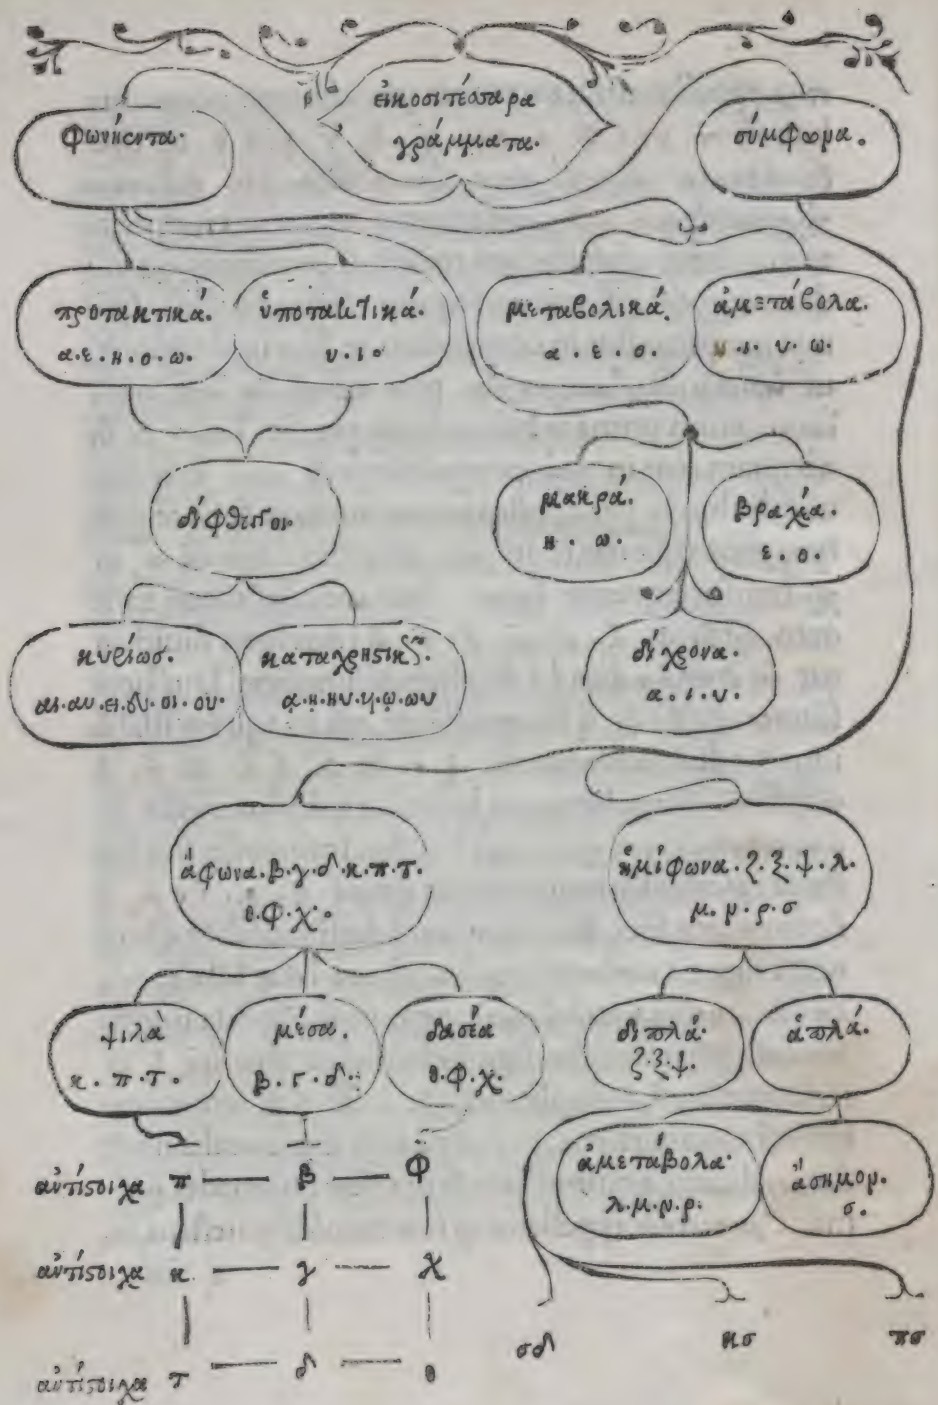 εἰκοσιτέσσαρα
γράμματα.
φωνήεντα.
σύμφωνα.
προτακτικά.
α. ε. η. ο. ω.
ὑποτακτικά.
υ. ι.
μεταβολικά.
α. ε. ο.
ἀμετάβολα.
η. ι. υ. ω.
δίφθογγοι.
μακρά.
η. ω.
βραχέα.
ε. ο.
κυρίωσ.
αι. αυ. ει. ευ. οι. ου.
καταχρηστικῶς.
ᾳ. ῃ. ηυ. υι. ῳ. ωυ
δίχρονα.
α. ι. υ.
ἄφωνα. β. γ. δ. κ. π. τ.
θ. φ. χ.
ἡμίφωνα. ζ. ξ. ψ. λ.
μ. ν. ρ. σ
ψιλὰ
κ. π. τ.
μέσα.
β. γ. δ.
δασέα
θ. φ. χ.
διπλά.
ζ. ξ. ψ.
ἁπλά.
ἀμετάβολα.
λ. μ. ν. ρ.
ἄσημον.
σ.
ἀντίστοιχα π β φ
ἀντίστοιχα κ γ χ
σδ κσ πσ
ἀντίστοιχα τ δ θ